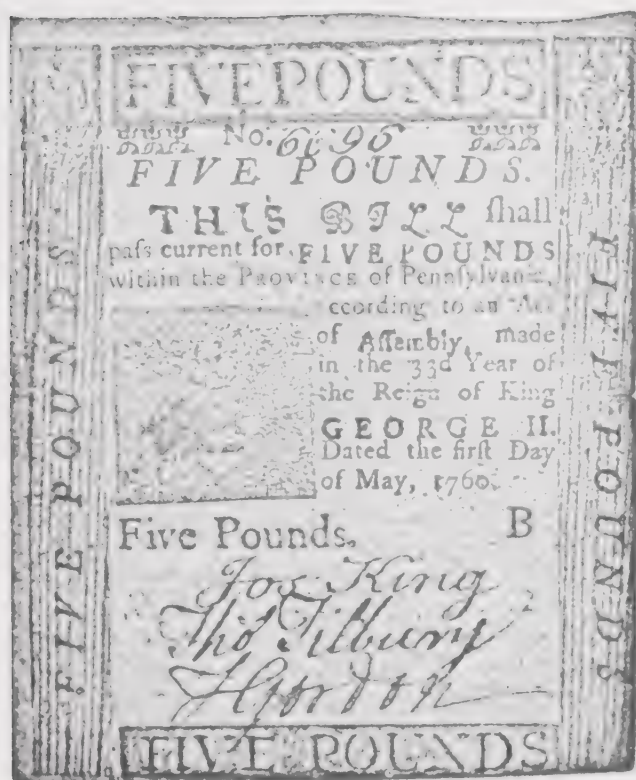 FIVE POUNDS
No. 6096
FIVE POUNDS.
THIS BILL ſhall
paſs current for FIVE POUNDS
within the PROVINCE of Pennſylvania,
ccording to an Act
of Aſſembly, made
in the 33d Year of
the Reign of King
GEORGE II.
Dated the firſt Day
of May, 1760.
Five Pounds. B
Jos King
Tho Tilbury
Gordon
FIVE POUNDS
FIVE POUNDS
FIVE POUNDS